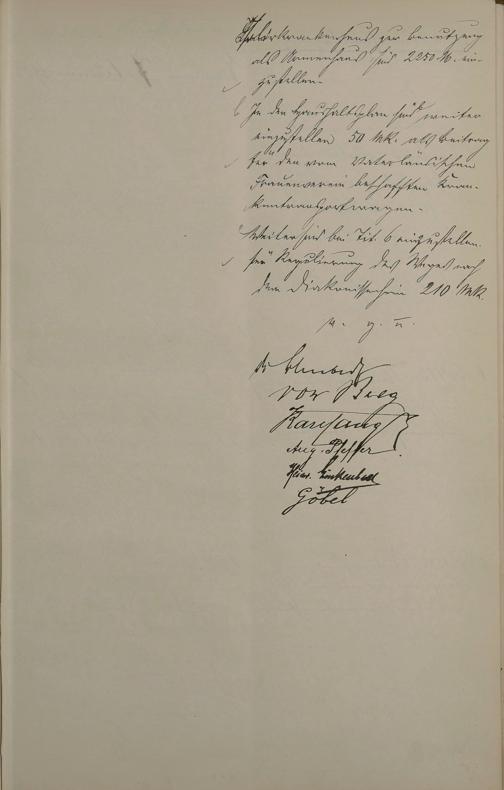 Krankenhaus zur Benutzung
als Armenhaus sind 2250 M. ein-
zustellen.
In den Haushaltsplan sind weiter
einzustellen 50 Mk. als Beitrag
für den vom Vaterländischen
Frauenverein beschafften Kran-
kentransportwagen.
Weiter sind bei Tit. 6 einzustellen
für Regulierung des Weges nach
dem Diakonissenheim 210 Mk.
v. g. u.
von Berg
Aug. Pfeffer
Heinr. Linkenbach
Göbel